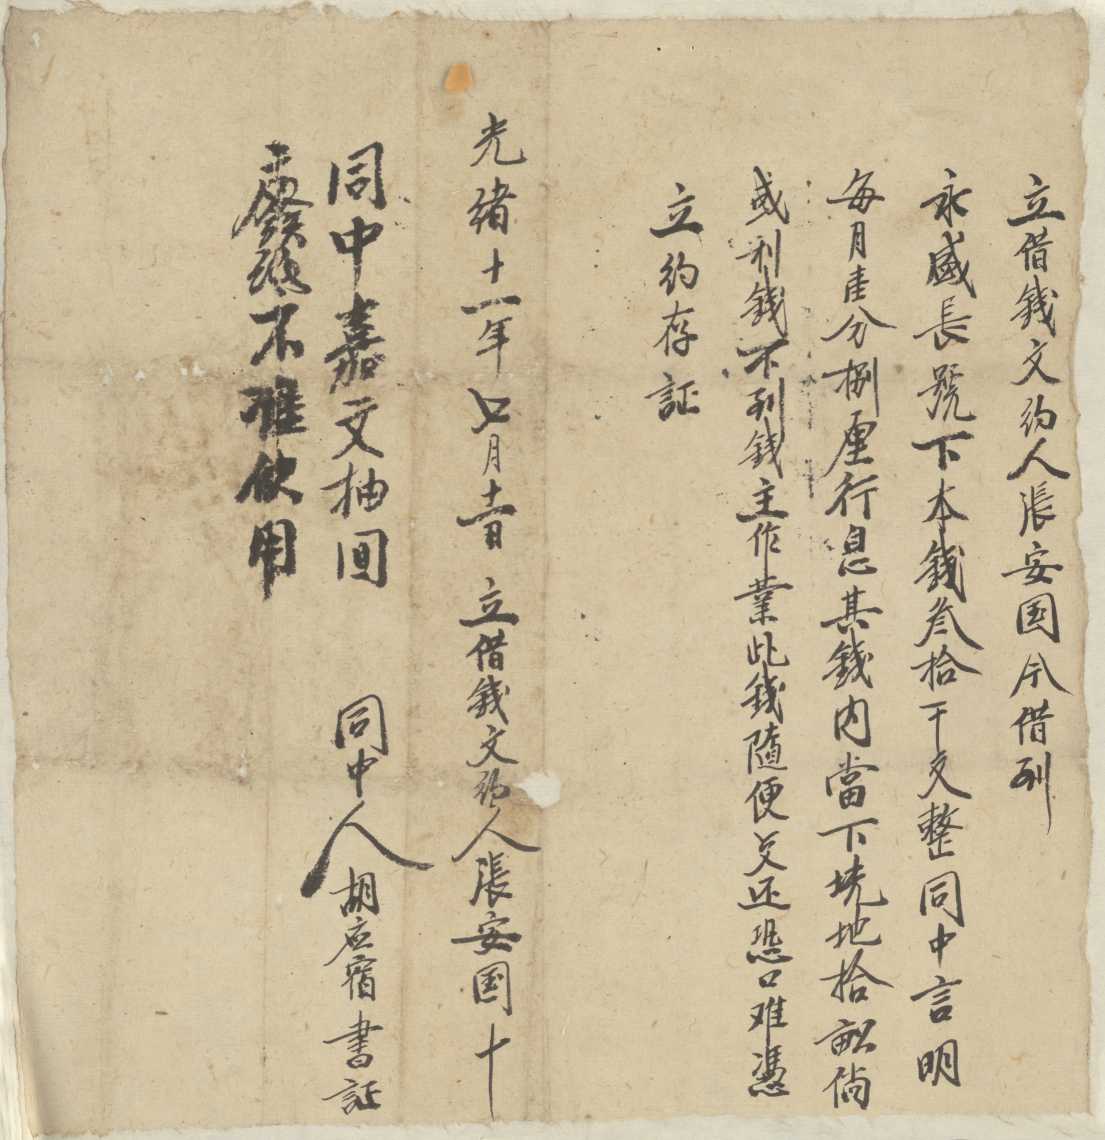 立借錢文約人張安国今借到
永盛長號下本錢叁拾千文整同中言明
每月壹分捌厘行息其錢内當下垙地拾畝倘
或利錢不到錢主作業此錢随便交还恐口难憑
立约存証
光緒十一年七月十一日 立借錢文约人張安国十
同中嘉文抽回
同中人胡应宿書証
不准使用